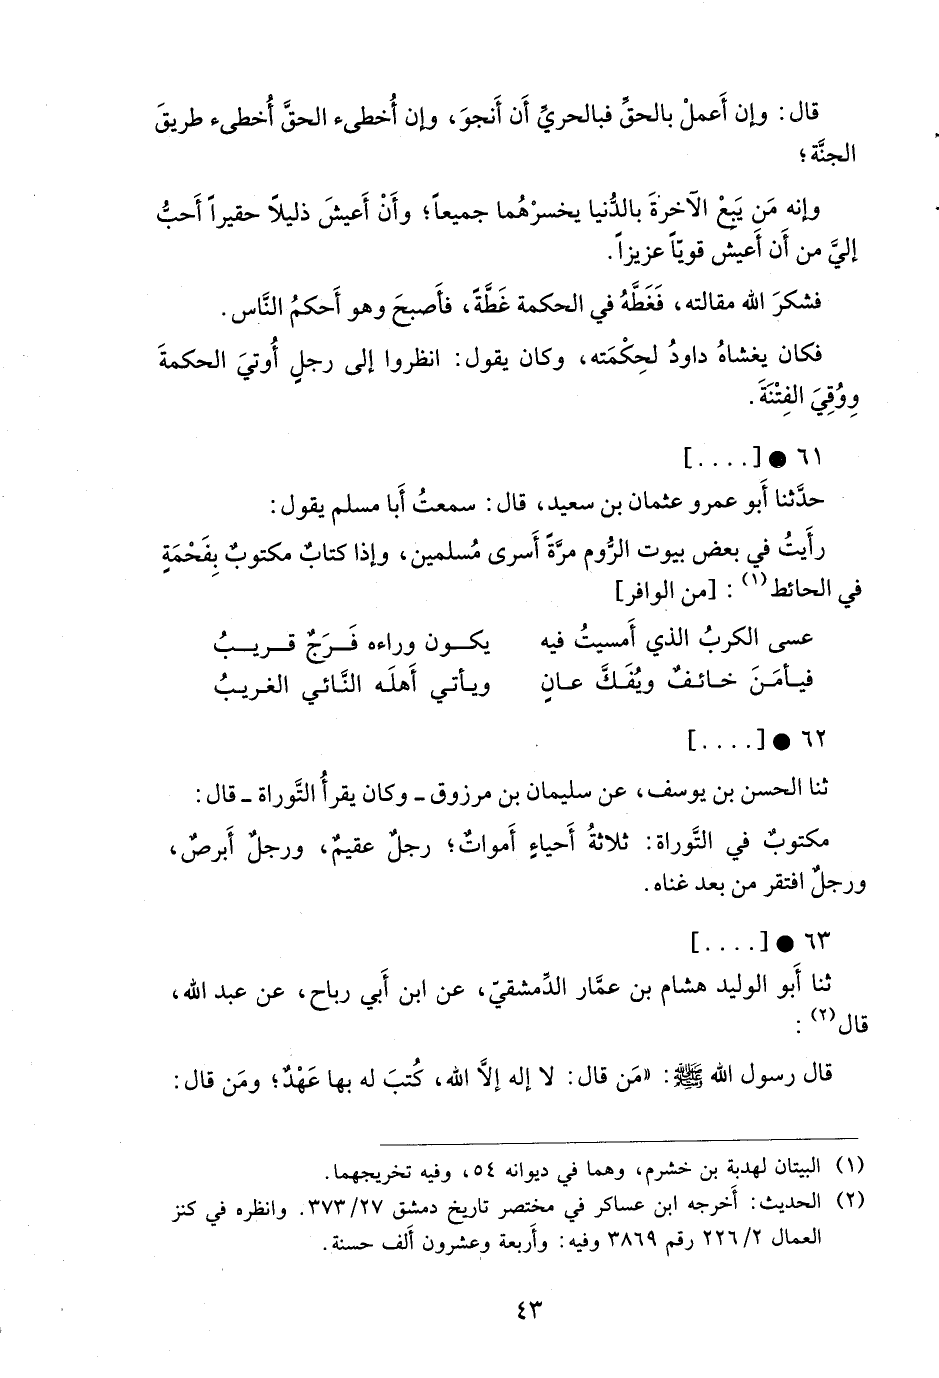 قال: وإن أَعملْ بالحقِّ فبالحريِّ أَن أَنجوَ، وإن أُخطىء الحقَّ أُخطىء طريقَ
الجنَّة؛
وإنه مَن يَبِعْ الآخرةَ بالدُّنيا يخسرْهُما جميعاً؛ وأَنْ أَعيشَ ذليلاً حقيراً أَحبُّ
إليَّ من أَن أَعيش قويّاً عزيزاً.
فشكرَ الله مقالته، فَغَطَّهُ في الحكمة غَطَّةً، فأَصبحَ وهو أَحكمُ النَّاس.
فكان يغشاهُ داودُ لحِكْمَته، وكان يقول: انظروا إلى رجلٍ أُوتيَ الحكمةَ
ووُقِيَ الفِتْنَةَ.
٦١ ● [....]
حدَّثنا أَبو عمرو عثمان بن سعيد، قال: سمعتُ أَبا مسلم يقول:
رأَيتُ في بعض بيوت الرُّوم مرَّةً أَسرى مُسلمين، وإذا كتابٌ مكتوبٌ بِفَحْمَةٍ
في الحائط(١): [من الوافر]
عسى الكربُ الذي أَمسيتُ فيه يكــون وراءه فَــرَجٌ قــريــبُ
فيـأمَـنَ خـائـفٌ ويُفَـكَّ عـانٍ ويـأتـي أَهلَـه النَّـائي الغـريـبُ
٦٢ ● [....]
ثنا الحسن بن يوسف، عن سليمان بن مرزوق ـ وكان يقرأُ التَّوراة ـ قال:
مكتوبٌ في التَّوراة: ثلاثةُ أَحياءٍ أَمواتٌ؛ رجلٌ عقيمٌ، ورجلٌ أَبرصٌ،
ورجلٌ افتقر من بعد غناه.
٦٣ ● [....]
ثنا أَبو الوليد هشام بن عمَّار الدِّمشقيّ، عن ابن أَبي رباح، عن عبد الله،
قال(٢):
قال رسول الله ﷺ: «مَن قال: لا إله إلاَّ الله، كُتبَ له بها عَهْدٌ؛ ومَن قال:
(١) البيتان لهدبة بن خشرم، وهما في ديوانه ٥٤، وفيه تخريجهما.
(٢) الحديث: أَخرجه ابن عساكر في مختصر تاريخ دمشق ٣٧٣/٢٧. وانظره في كنز
العمال ٢٢٦/٢ رقم ٣٨٦٩ وفيه: وأَربعة وعشرون أَلف حسنة.
٤٣